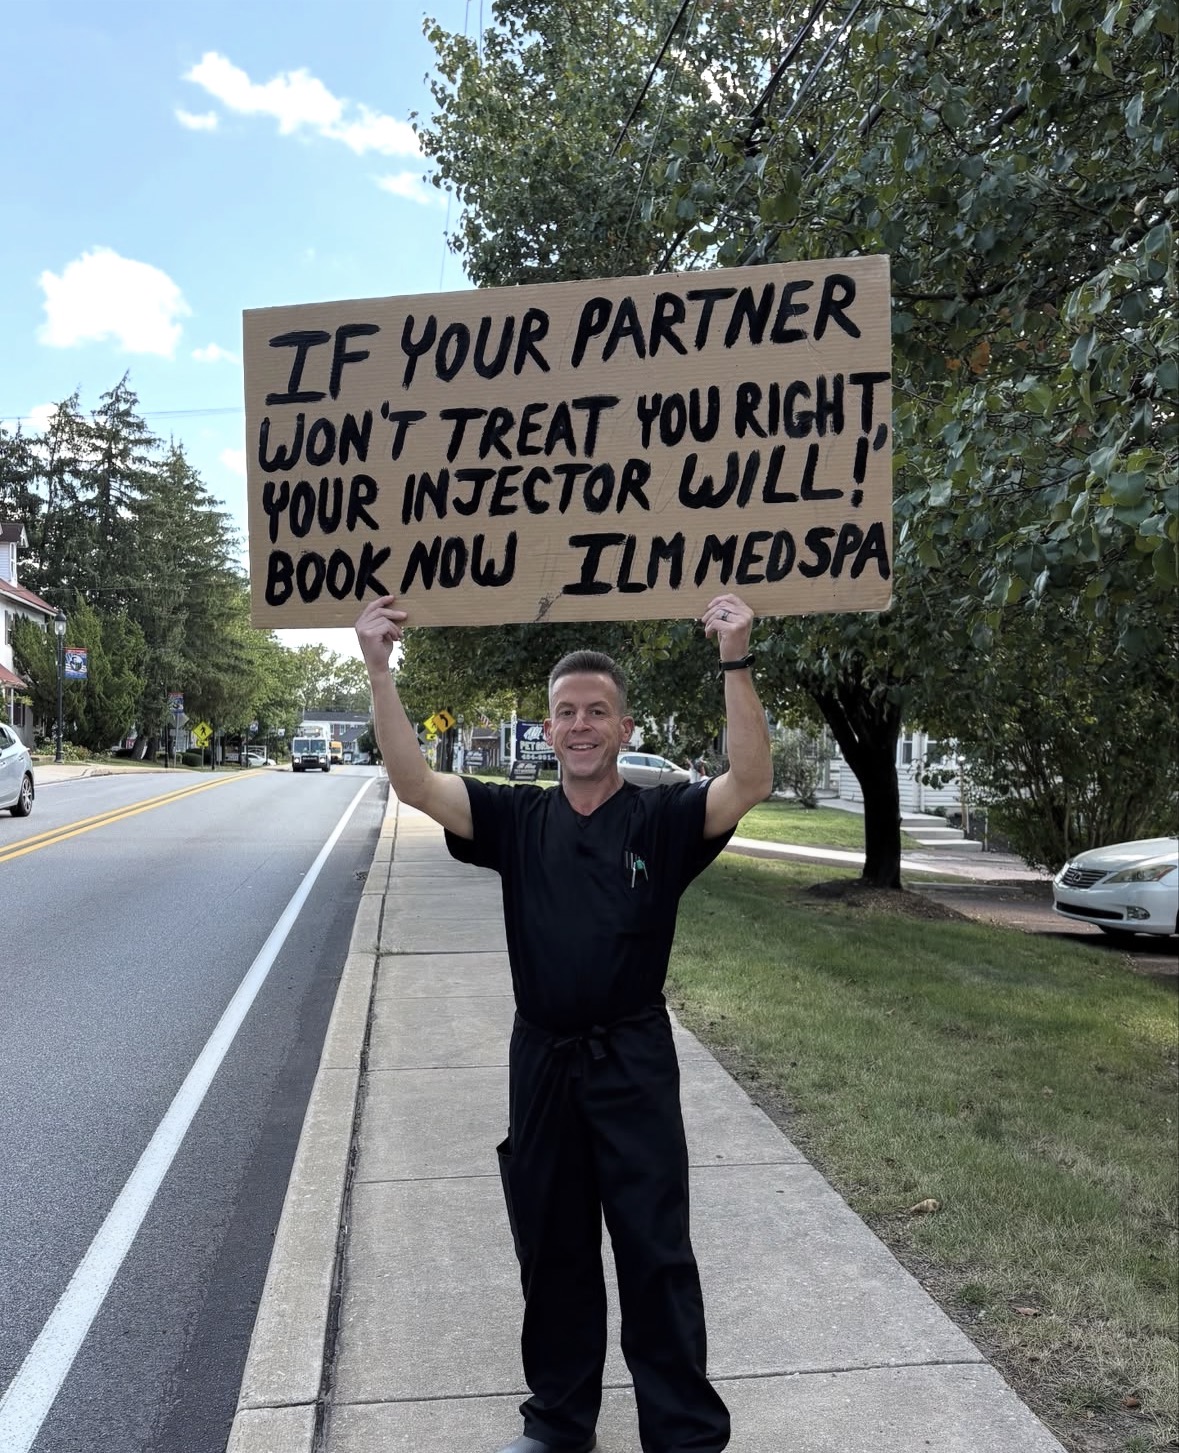 IF YOUR PARTNER
WON'T TREAT YOU RIGHT,
YOUR INJECTOR WILL!
BOOK NOW ILM MEDSPA